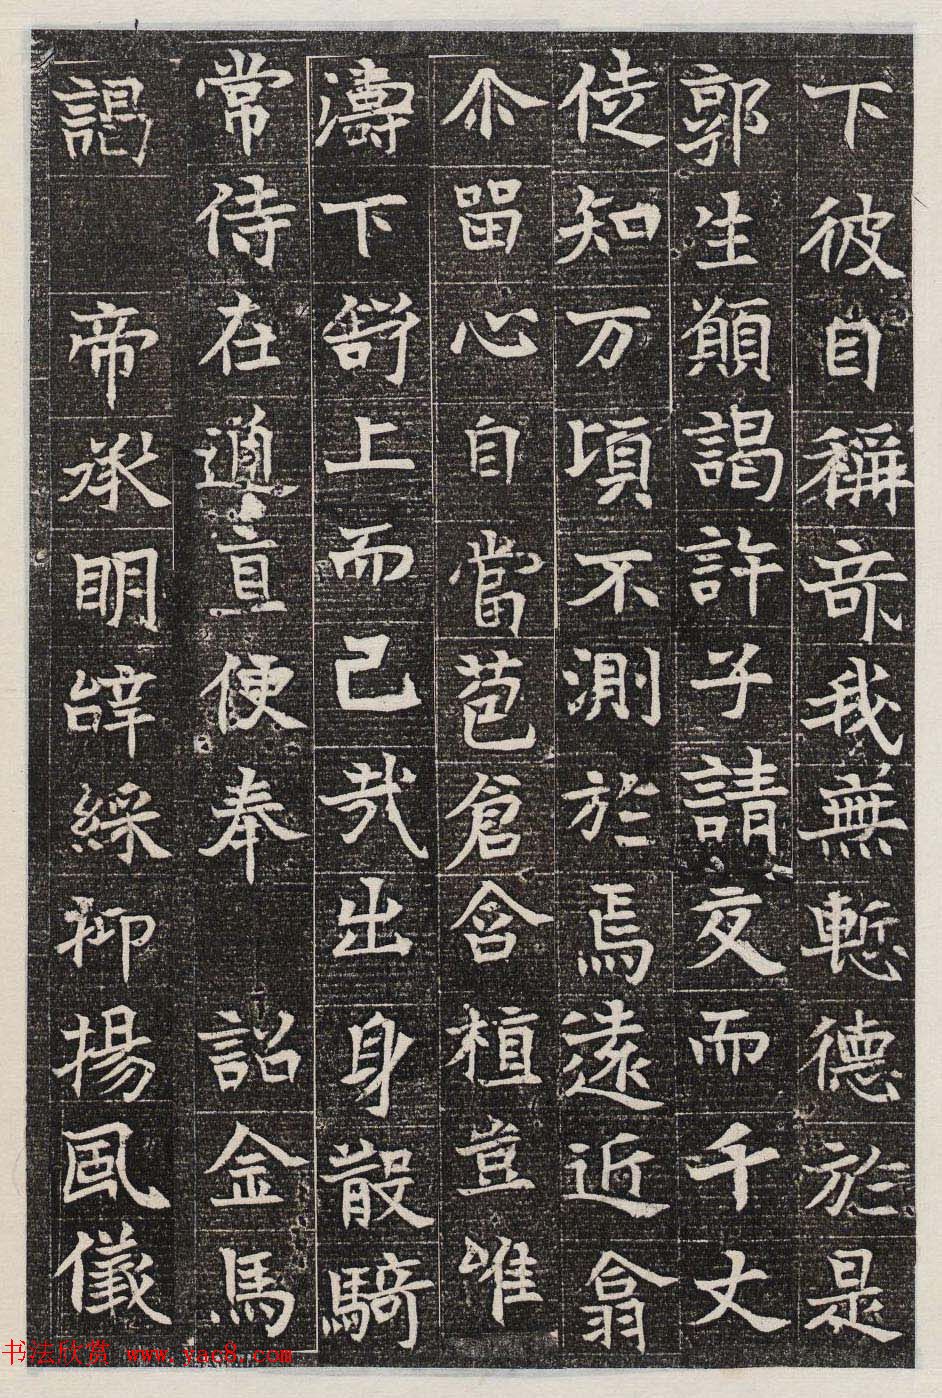 下彼自稱竒我無慙德於是
郭生願謁許子請交而千丈
徒知万頃不測於焉遠近翕
尒留心自當苞倉含植豈唯
濤下韜上而已哉出身散騎
常侍在道直便奉詔金馬
謁帝承明辞綵抑揚風儀
书法欣赏 www.yac8.com